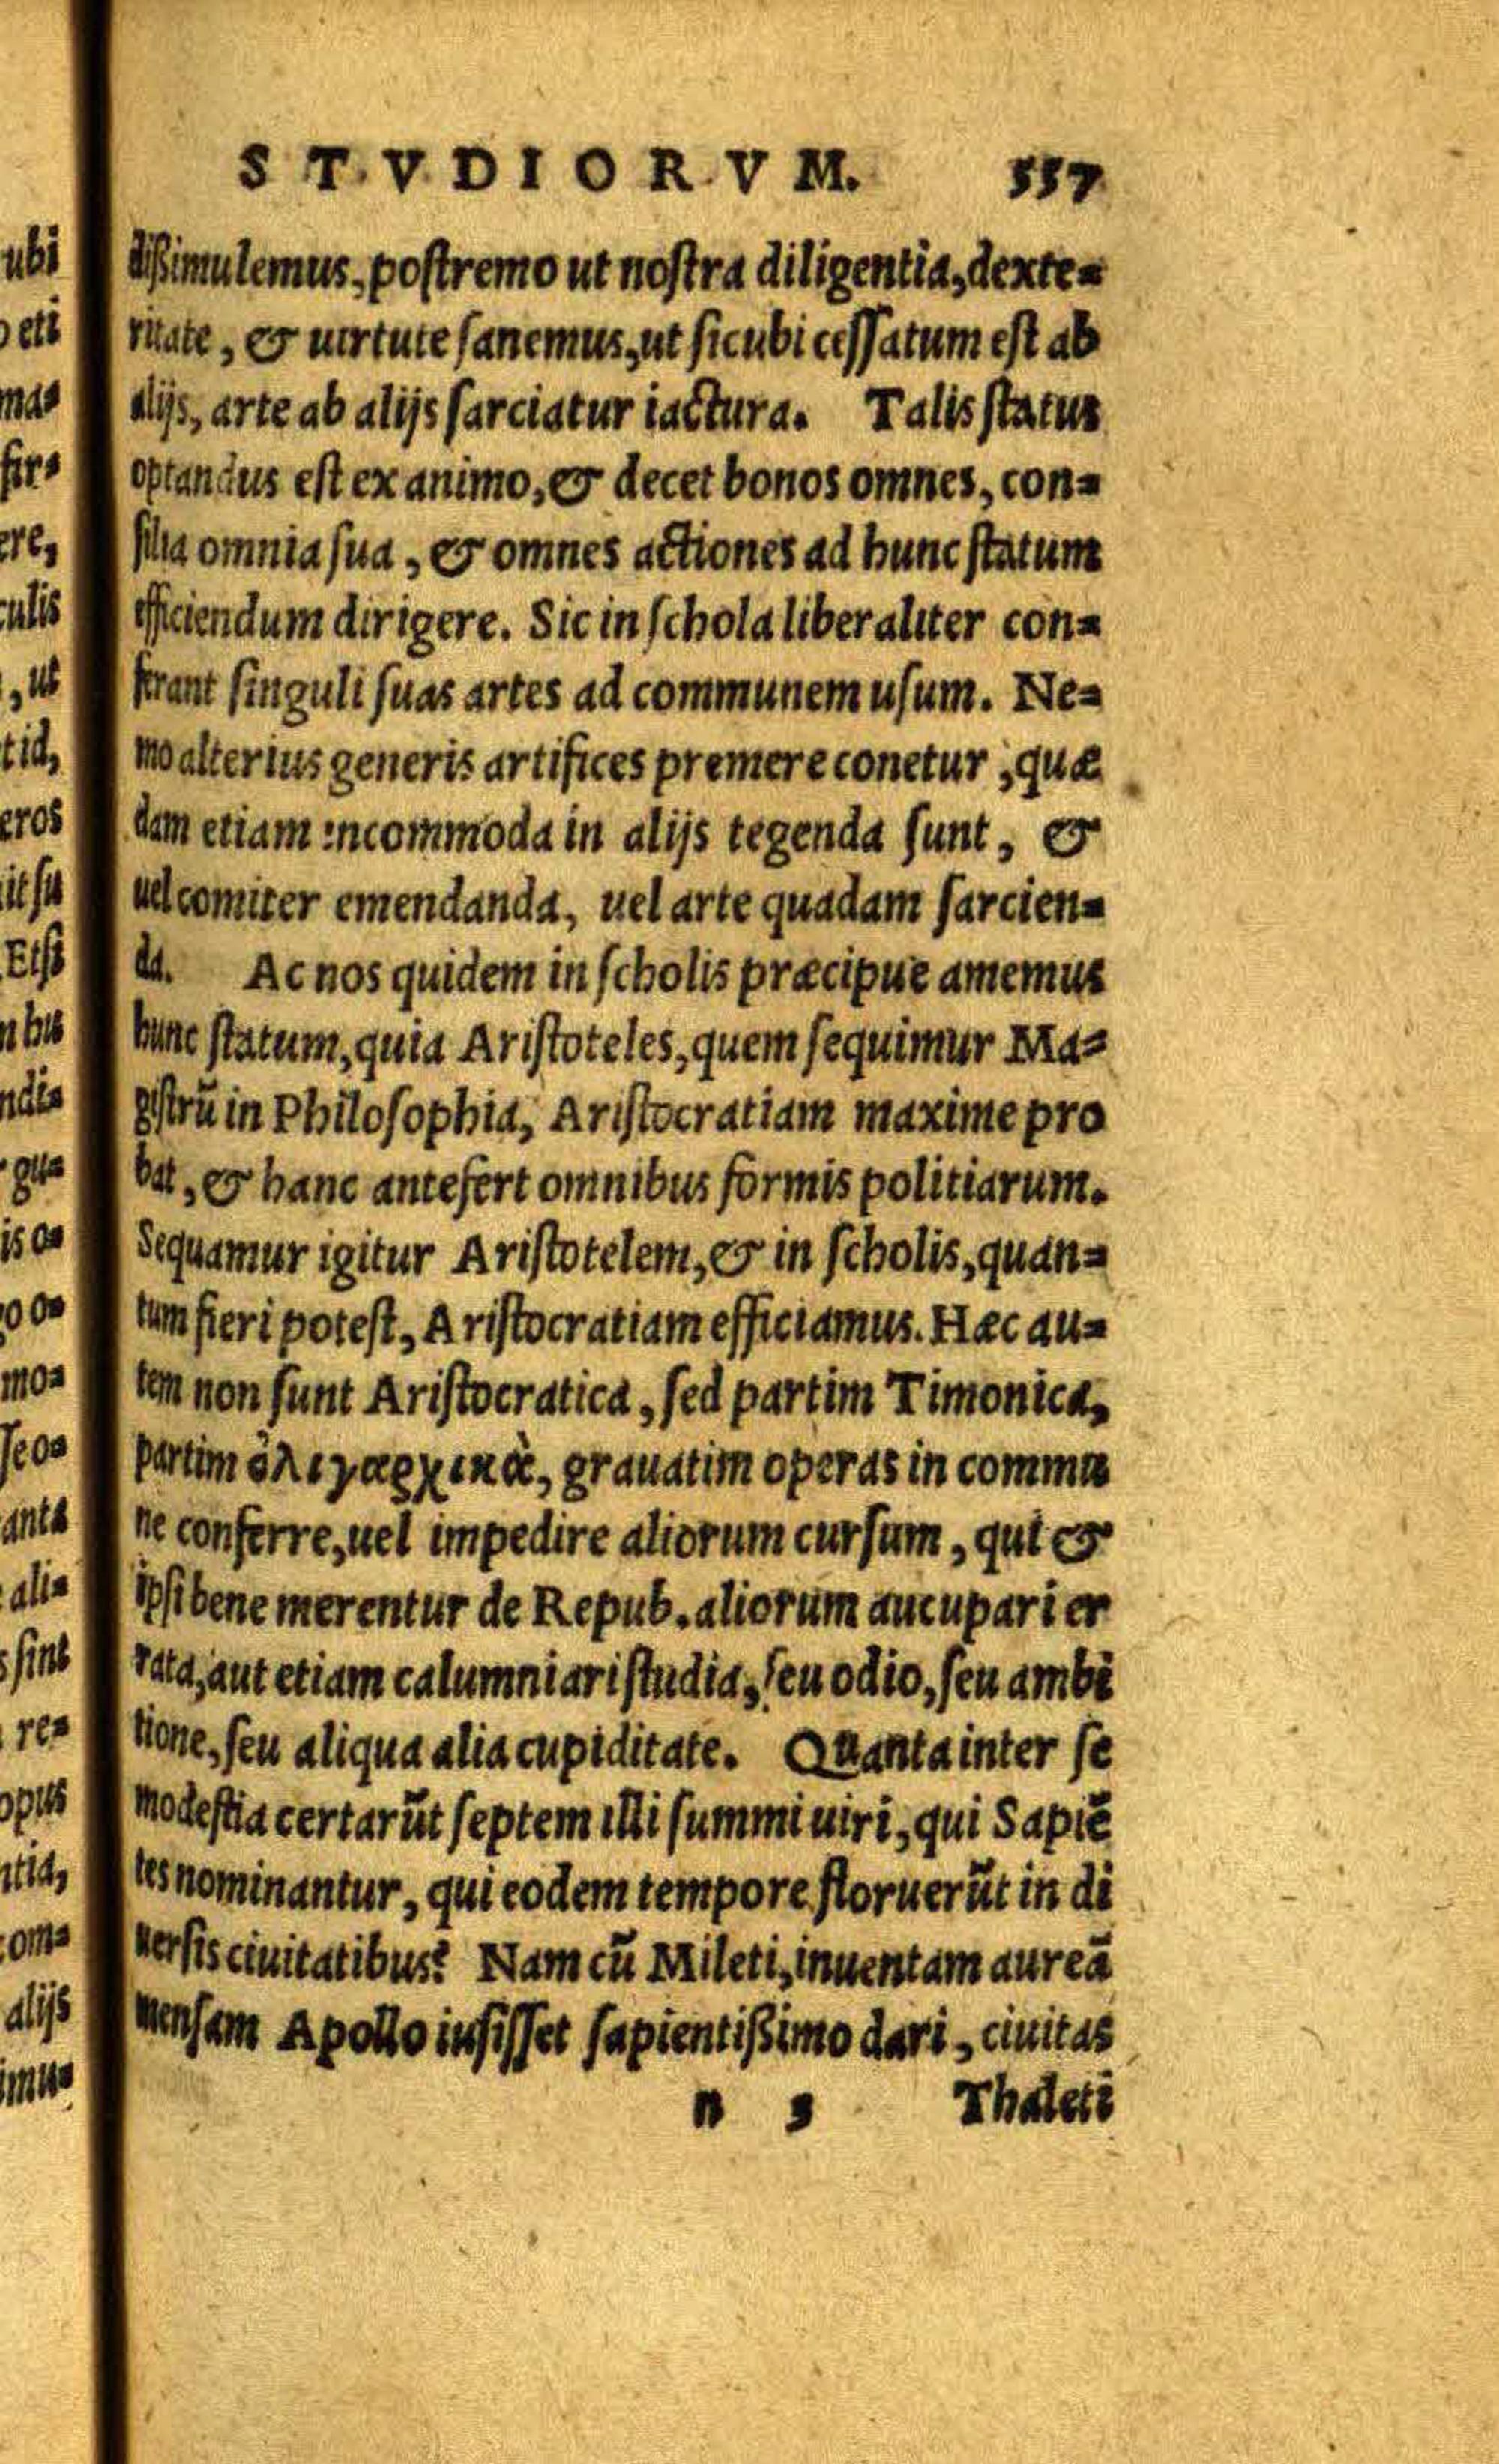 STVDIORVM. 557
dißimulemus, postremo ut nostra diligentia, dexte=
ritate, & uirtute sanemus, ut sicubi cessatum est ab
alijs, arte ab alijs sarciatur iactura. Talis status
optandus est ex animo, & decet bonos omnes, con=
silia omnia sua, & omnes actiones ad hunc statum
efficiendum dirigere. Sic in schola liberaliter con=
ferant singuli suas artes ad communem usum. Ne=
mo alterius generis artifices premere conetur, quæ
dam etiam incommoda in alijs tegenda sunt, &
uel comiter emendanda, uel arte quadam sarcien=
da. Ac nos quidem in scholis præcipue amemus
hunc statum, quia Aristoteles, quem sequimur Ma=
gistrū in Philosophia, Aristocratiam maxime pro
bat, & hanc antefert omnibus formis politiarum.
Sequamur igitur Aristotelem, & in scholis, quan=
tum fieri potest, Aristocratiam efficiamus. Hæc au=
tem non sunt Aristocratica, sed partim Timonica,
partim ὀλιγαρχικὰ, grauatim operas in commu
ne conferre, uel impedire aliorum cursum, qui &
ipsi bene merentur de Repub. aliorum aucupari er
rata, aut etiam calumniari studia, seu odio, seu ambi
tione, seu aliqua alia cupiditate. Quanta inter se
modestia certarūt septem illi summi uiri, qui Sapiē
tes nominantur, qui eodem tempore floruerūt in di
uersis ciuitatibus? Nam cū Mileti, inuentam aureā
mensam Apollo iusisset sapientißimo dari, ciuitas
n 3 Thaleti